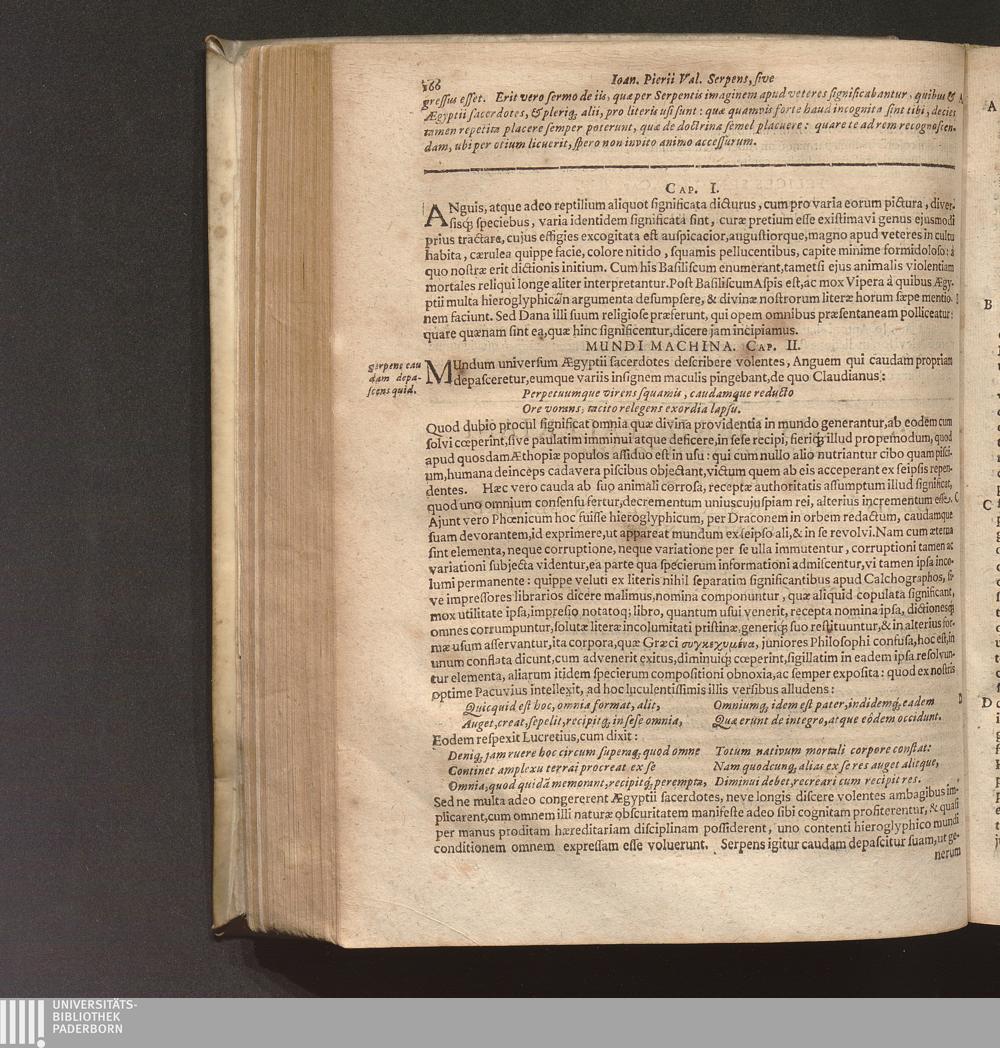 166
Ioan. Pierii Val. Serpens, sive
gressus esset. Erit vero sermo de iis, quæ per Serpentis imaginem apud veteres significabantur, quibus &
Ægyptii sacerdotes, & pleriq; alii, pro literis usi sunt: quæ quamvis forte haud incognita sint tibi, decies
tamen repetita placere semper poterunt, quæ de doctrina semel placuere: quare te ad rem recognoscen-
dam, ubi per otium licuerit, spero non invito animo accessurum.
CAP. I.
ANguis, atque adeo reptilium aliquot significata dicturus, cum pro varia eorum pictura, diver-
sisq; speciebus, varia identidem significata sint, curæ pretium esse existimavi genus ejusmodi
prius tractare, cujus effigies excogitata est auspicacior, augustiorque, magno apud veteres in cultu
habita, cærulea quippe facie, colore nitido, squamis pellucentibus, capite minime formidoloso: à
quo nostræ erit dictionis initium. Cum his Basiliscum enumerant, tametsi ejus animalis violentiam
mortales reliqui longe aliter interpretantur. Post Basiliscum Aspis est, ac mox Vipera à quibus Ægy-
ptii multa hieroglyphicῶn argumenta desumpsere, & divinæ nostrorum literæ horum sæpe mentio-
nem faciunt. Sed Dana illi suum religiose præferunt, qui opem omnibus præsentaneam polliceatur:
quare quænam sint ea, quæ hinc significentur, dicere jam incipiamus.
MUNDI MACHINA. CAP. II.
Serpens cau
dam depa-
scens quid.
MUndum universum Ægyptii sacerdotes describere volentes, Anguem qui caudam propriam
depasceretur, eumque variis insignem maculis pingebant, de quo Claudianus:
Perpetuumque virens squamis, caudamque reducto
Ore vorans, tacito relegens exordia lapsu.
Quod dubio procul significat omnia quæ divina providentia in mundo generantur, ab eodem cum
solvi cœperint, sive paulatim imminui atque deficere, in sese recipi, fieriq; illud propemodum, quod
apud quosdam Æthopiæ populos assiduo est in usu: qui cum nullo alio nutriantur cibo quam pisci-
um, humana deinceps cadavera piscibus objectant, victum quem ab eis acceperant ex seipsis repen-
dentes. Hæc vero cauda ab suo animali corrosa, receptæ authoritatis assumptum illud significat,
quod uno omnium consensu fertur, decrementum uniuscujuspiam rei, alterius incrementum esse.
Ajunt vero Phœnicum hoc fuisse hieroglyphicum, per Draconem in orbem redactum, caudamque
suam devorantem, id exprimere, ut appareat mundum ex seipso ali, & in se revolvi. Nam cum æterna
sint elementa, neque corruptione, neque variatione per se ulla immutentur, corruptioni tamen ac
variationi subjecta videntur, ea parte qua specierum informationi admiscentur, vi tamen ipsa inco-
lumi permanente: quippe veluti ex literis nihil separatim significantibus apud Calchographos, si-
ve impressores librarios dicere malimus, nomina componuntur, quæ aliquid copulata significant,
mox utilitate ipsa, impresso notatoq; libro, quantum usui venerit, recepta nomina ipsa, dictionesq;
omnes corrumpuntur, solutæ literæ incolumitati pristinæ, generiq; suo restituuntur, & in alterius for-
mæ usum asservantur, ita corpora, quæ Græci συγκεχυμένα, juniores Philosophi confusa, hoc est, in
unum conflata dicunt, cum advenerit exitus, diminuiq; cœperint, sigillatim in eadem ipsa resolvun-
tur elementa, aliarum itidem specierum compositioni obnoxia, ac semper exposita: quod ex nostris
optime Pacuvius intellexit, ad hoc luculentissimis illis versibus alludens:
Quicquid est hoc, omnia format, alit, Omniumq; idem est pater, indidemq; eadem
Auget, creat, sepelit, recipitq; in sese omnia, Quæ erunt de integro, atque eodem occidunt.
Eodem respexit Lucretius, cum dixit:
Deniq; jam tuere hoc circum superaq; quod omne Totum nativum mortali corpore constat:
Continet amplexu terrai procreat ex se Nam quodcunq; alias ex se res auget alitque,
Omnia, quod quidã memorant, recipitq; perempta, Diminui debet, recreari cum recipit res.
Sed ne multa adeo congererent Ægyptii sacerdotes, neve longis discere volentes ambagibus im-
plicarent, cum omnem illi naturæ obscuritatem manifeste adeo sibi cognitam profiterentur, & quasi
per manus proditam hæreditariam disciplinam possiderent, uno contenti hieroglyphico mundi
conditionem omnem expressam esse voluerunt. Serpens igitur caudam depascitur suam, ut ge-
nerum
A
B
C
D
UNIVERSITÄTS-
BIBLIOTHEK
PADERBORN